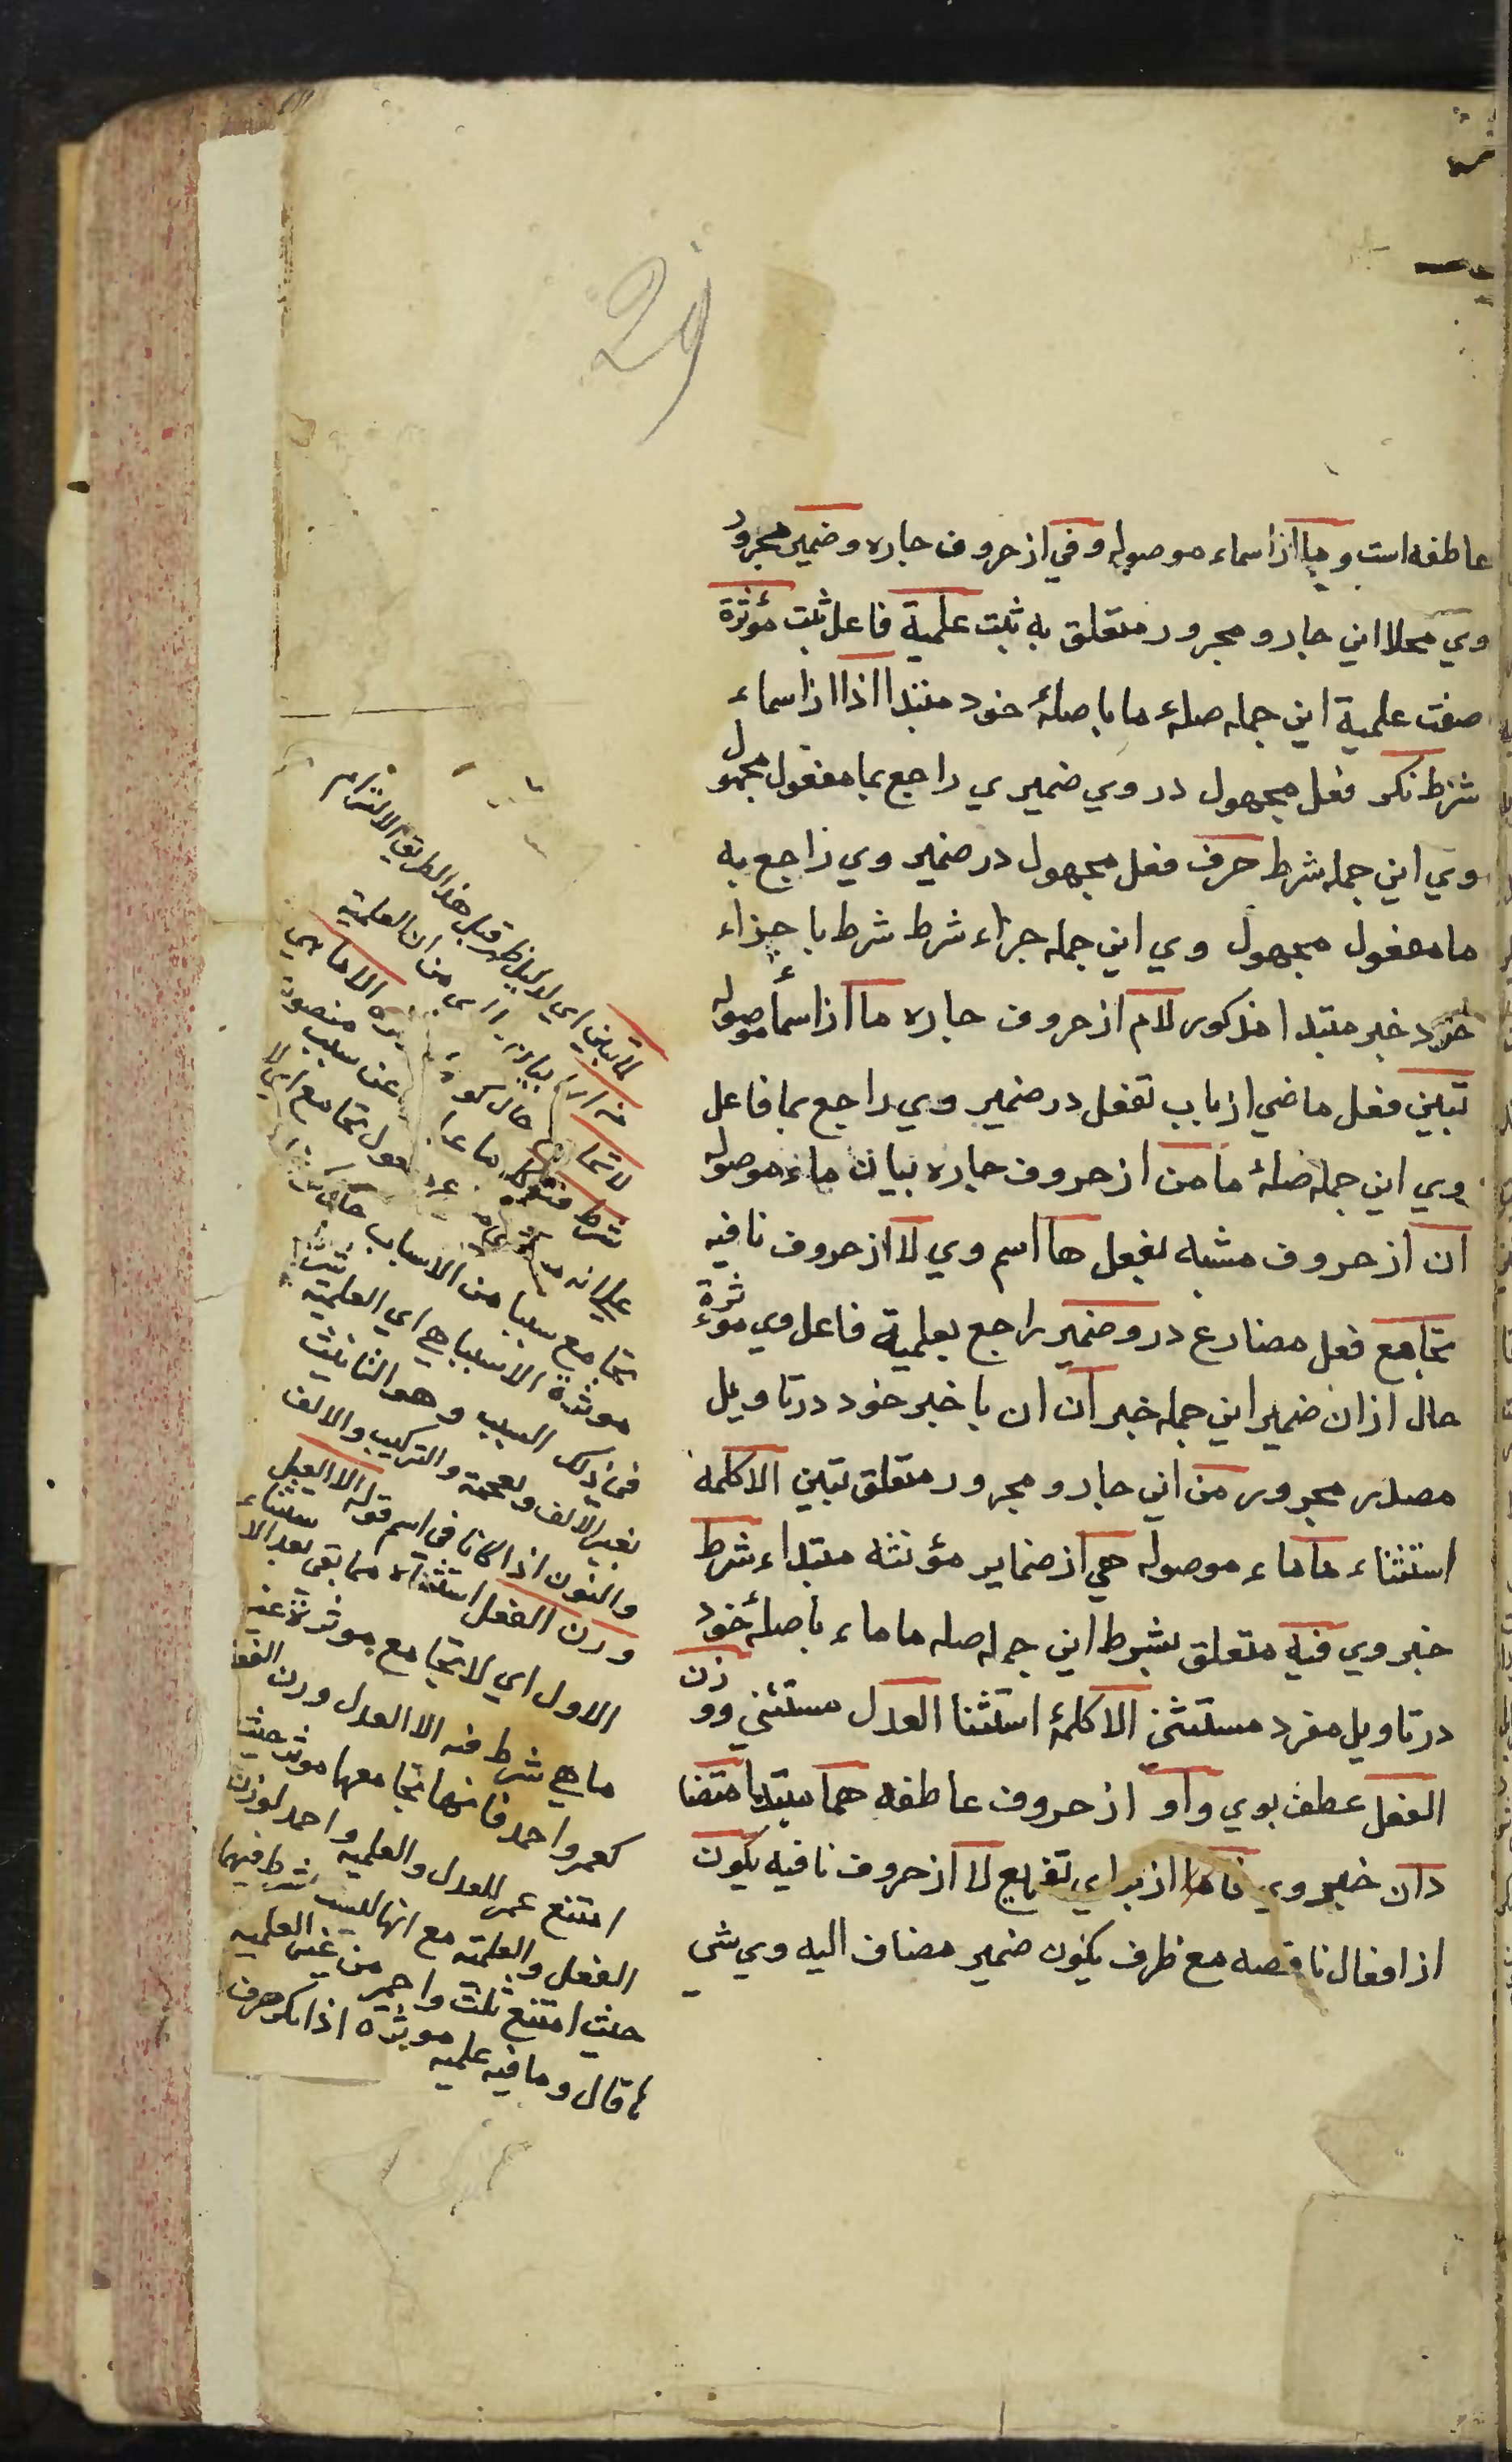 29
عاطفه است و ما از اسماء موصوله و في از حروف جاره و ضمير مجرور
وي محلا اين جار و مجرور متعلق به ثبت علمية فاعل ثبت مؤثرة
صفت علمية اين جمله صلهٔ ما با صلهٔ خود مبتدا اذا از اسماء
شرط نكر فعل مجهول در وي ضميري راجع بما مفعول مجهول
وي اين جمله شرط صرف فعل مجهول در ضمير وي راجع به
ما مفعول مجهول وي اين جمله جزاء شرط شرط با جزاء
خود خبر مبتدا مذكور لام از حروف جاره ما از اسماء موصوله
تبين فعل ماضي از باب تفعل در ضمير وي راجع بما فاعل
وي اين جمله صلهٔ ما من از حروف جاره بيان ماء موصوله
ان از حروف مشبه بفعل ها اسم وي لا از حروف نافيه
تجامع فعل مضارع درو ضمير راجع بعلمية فاعل وي مؤثرة
حال از ان ضمير اين جمله خبر ان ان با خبر خود در تاويل
مصدر مجرور من اين جار و مجرور متعلق تبين الا كلمهٔ
استثناء ما ماء موصوله هي از ضماير مؤنثه مبتداء شرط
خبر وي فيه متعلق بشرط اين جمله صله ما ماء با صلهٔ خود
در تاويل مفرد مستثنى الا كلمهٔ استثنا العدل مستثنى و وزن
الفعل عطف بوي واو از حروف عاطفه هما مبتدا متضا
دان خبر وي فا از براي تفريع لا از حروف نافيه يكون
از افعال ناقصه مع ظرف يكون ضمير مضاف اليه وي شي
لما تبين اي لدليل ظهر قبل هذا لطريق الالتزام
من ان العلمية
لا تجامع
الا ما هي
شرط فيه
عن سبب
علي انه
تجامع سببا من الاسباب حال كونها
موثرة الا سببا هي اي العلمية شرط
في ذلك السبب و هو التانيث
بغير الالف و العجمة و التركيب و الالف
و النون اذا كانا في اسم قوله الا العدل
و وزن الفعل استثناء مما بقي بعد الاستثناء
الاول اي لا تجامع موثرة غير
ما هي شرط فيه الا العدل و وزن الفعل
كعمر و احمد فانها تجامعها موثرة حيث
امتنع عمر للعدل و العلميه و احمد لوزن
الفعل و العلمية مع انها ليست بشرط فيهما
حيث امتنع ثلث و احمر من غير العلميه
قال و ما فيه علميه موثرة اذا نكر صرف